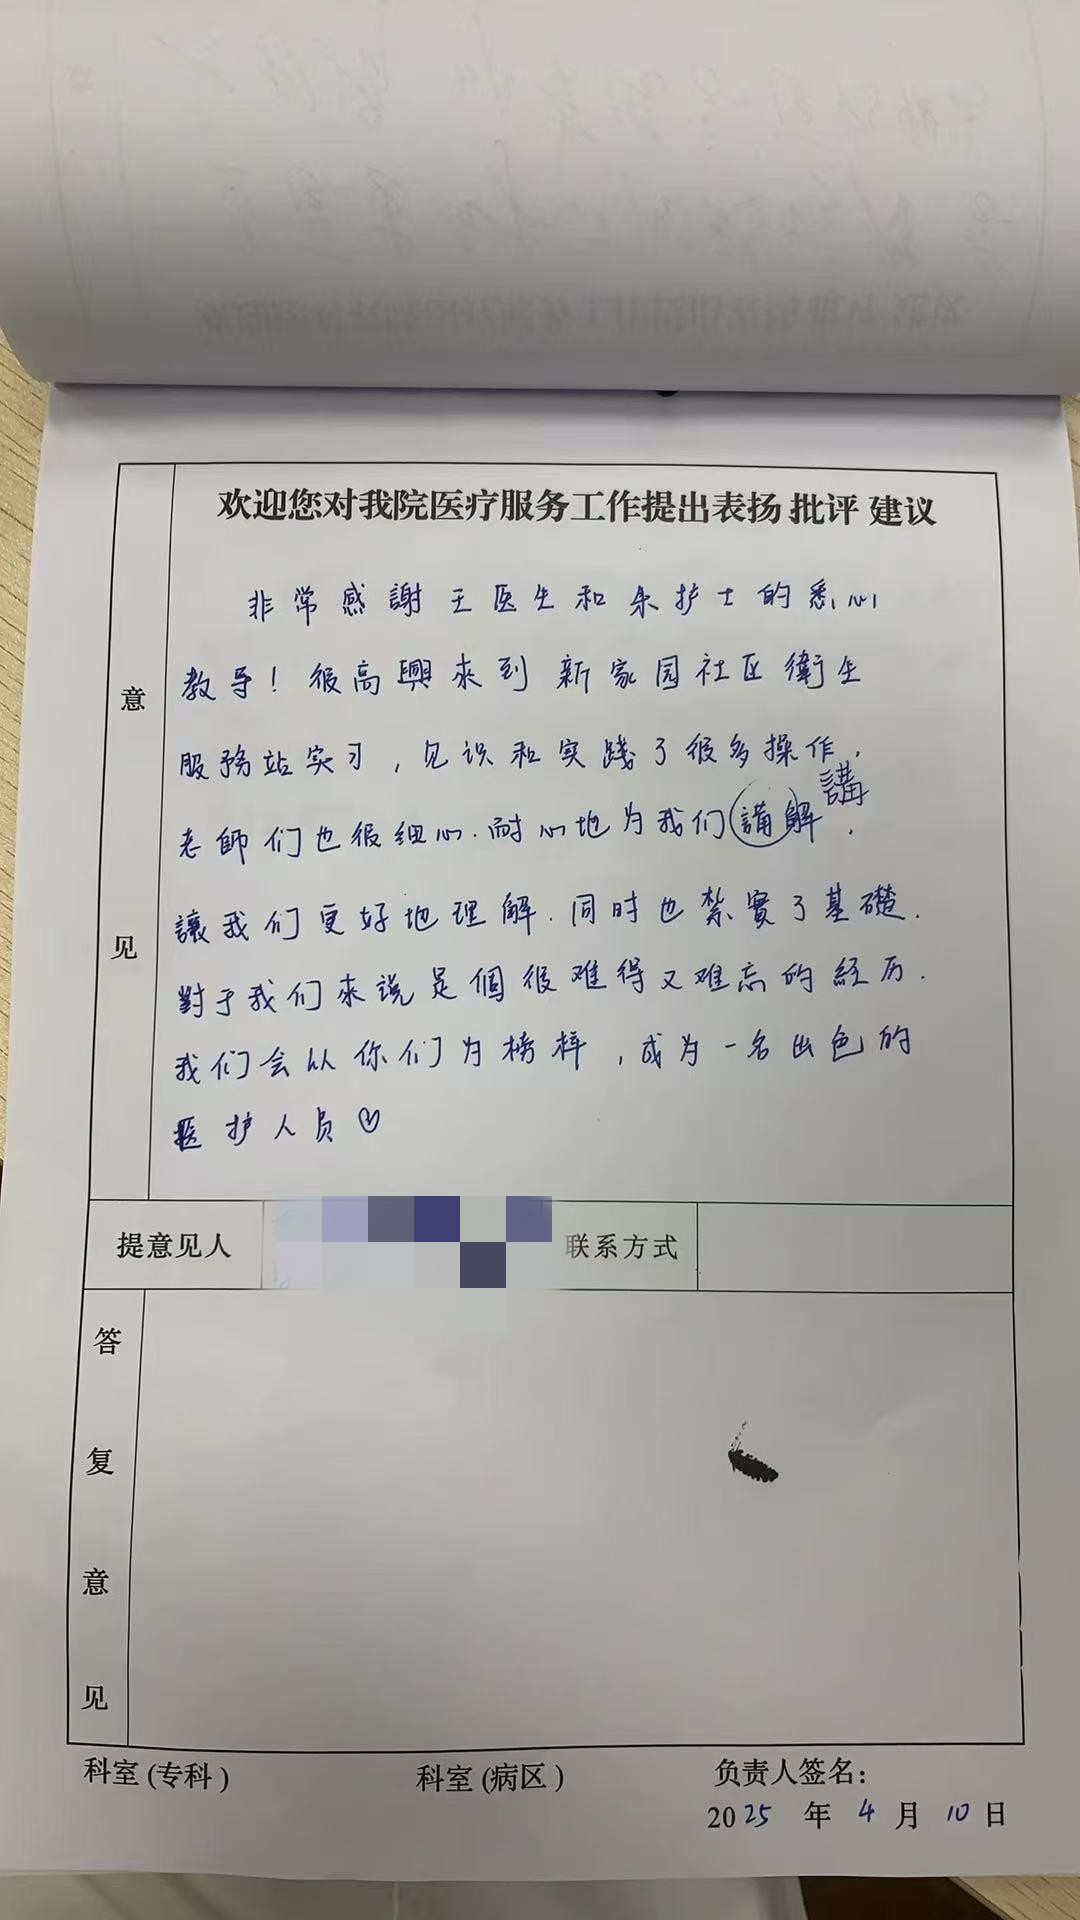 欢迎您对我院医疗服务工作提出表扬 批评 建议
意见
非常感謝王医生和朱护士的悉心
教导！很高興來到新家园社区衛生
服務站实习，见识和实践了很多操作，
講
老師们也很细心、耐心地为我们講解，
讓我们更好地理解，同时也紮實了基礎，
對于我们来说是個很难得又难忘的経历，
我们会以你们为榜样，成为一名出色的
医护人员
提意见人
联系方式
答复意见
科室(专科)
科室(病区)
负责人签名：
2025 年 4 月 10 日